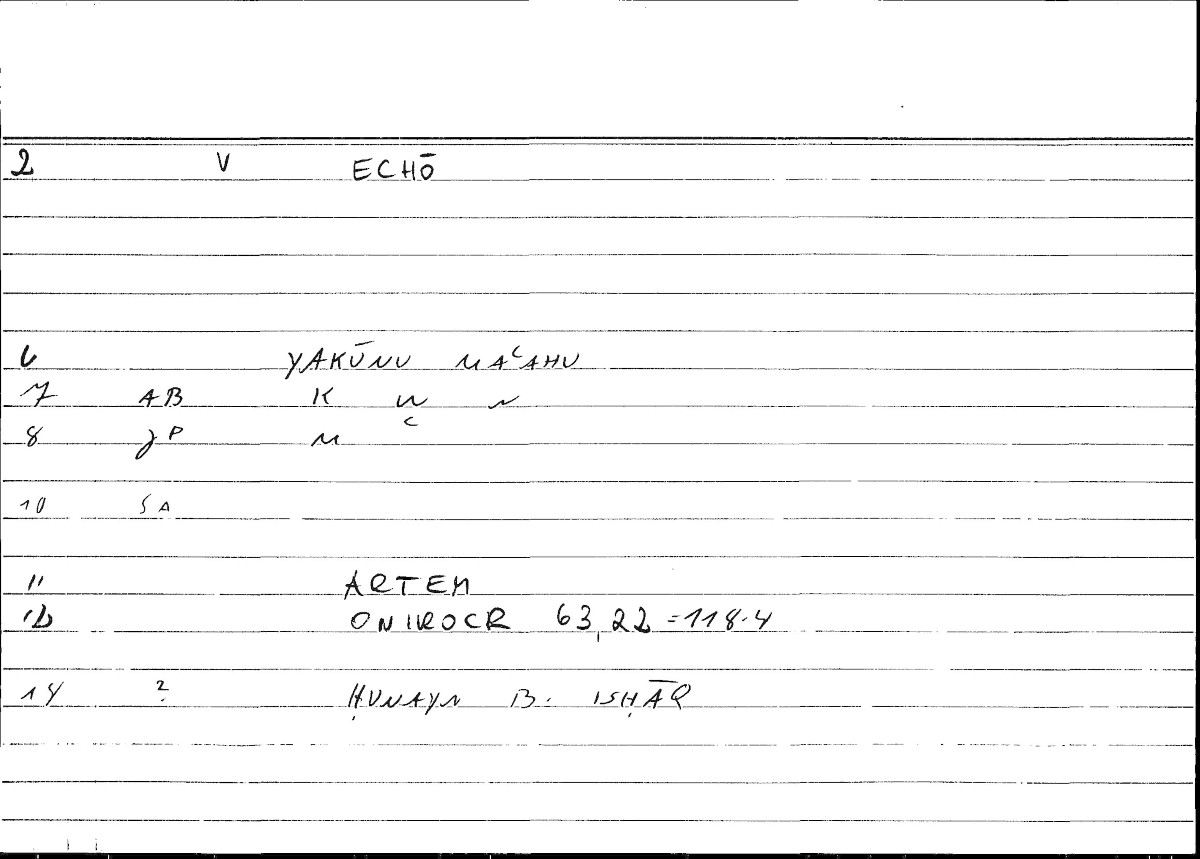 2 V ECHŌ
6 YAKŪNU MAʿAHU
7 AB K W N
8 JP M ʿ
10 SA
11 ARTEM
12 ONIROCR 63,22 = 118.4
14 2 ḤUNAYN B. ISḤĀQ